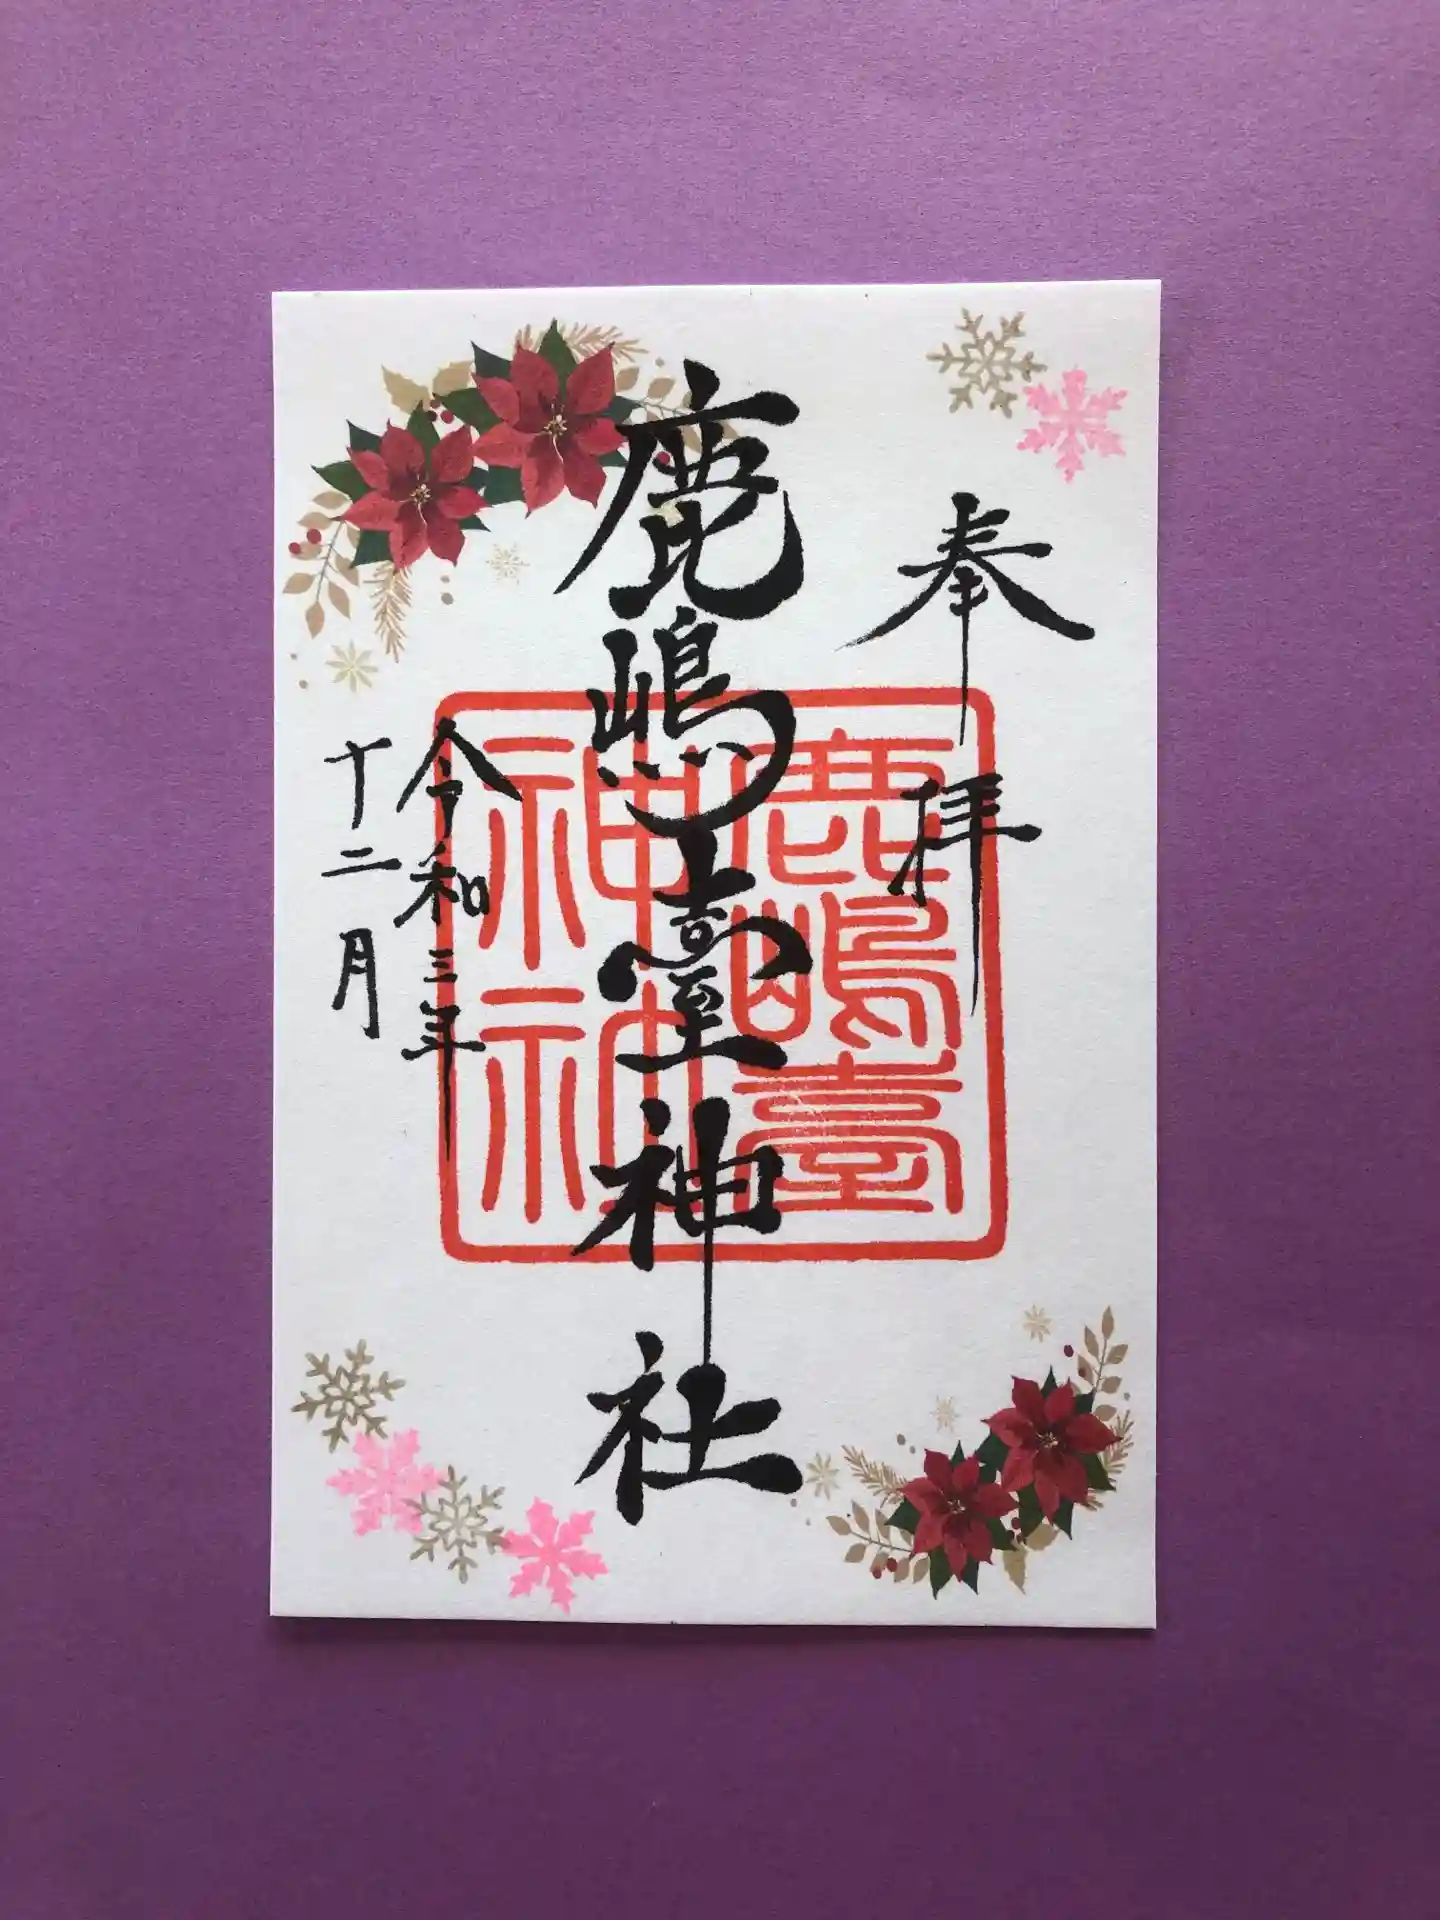 奉拝
鹿嶋臺神社
鹿嶋臺
神社
神社
令和三年
十二月